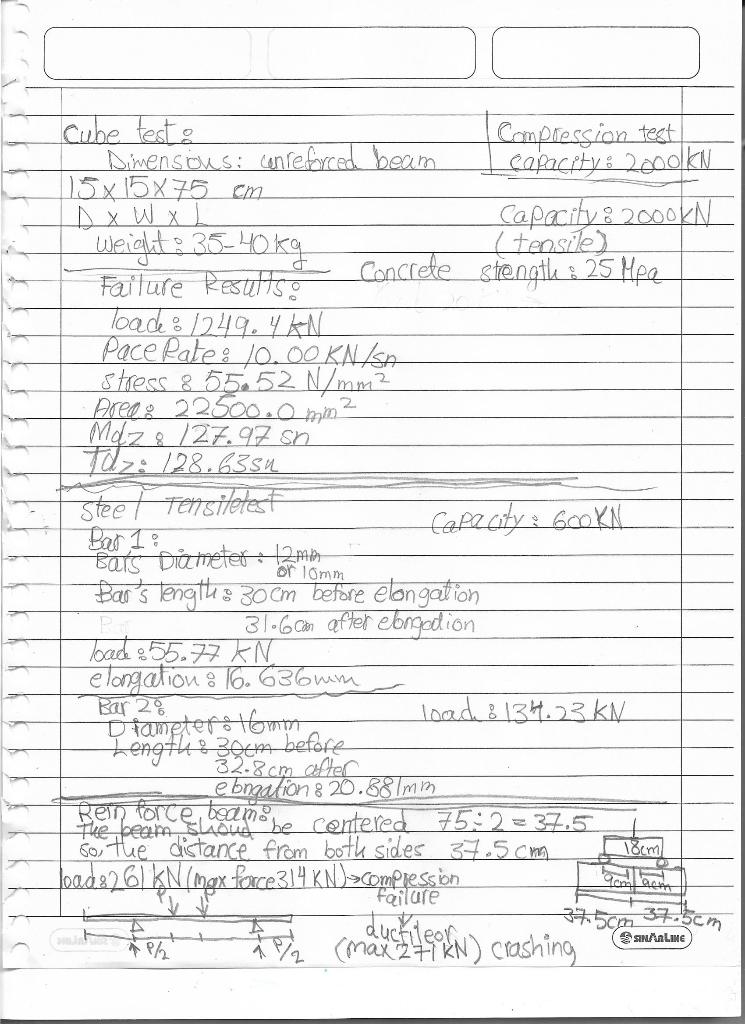 Cube test:
Compression test
Dimensions: unreforced beam
capacity: 2000 KN
15x15x75 cm
D x W x L
Capacity: 2000 KN
weight: 35-40 kg
(tensile)
Concrete stength: 25 Mpa
Failure Results:
load: 1249.4 kN
Pace Rate: 10.00 KN/sn
stress: 55.52 N/mm²
Area: 22500.0 mm²
Mdz: 127.97 sn
Tdz: 128.63sn
Steel Tensile test
Capacity: 600 KN
Bar 1:
Bar's Diameter: 12mm
or 10mm
Bar's length: 30 cm before elongation
31.6 cm after elongation
load: 55.77 kN
elongation: 16.636mm
Bar 2:
load: 134.23 KN
Diameter: 16mm
Length: 30cm before
32.8cm after
elongation: 20.881mm
Rein force beam:
The beam should be centered 75÷2=37.5
so, the distance from both sides 37.5 cm
18cm
load: 261 KN (max force 314 KN) → compression
failure
9cm 9cm
P
37.5cm 37.5cm
ductile or
P/2 P/2
(max 271 KN) crashing
SINARLINE